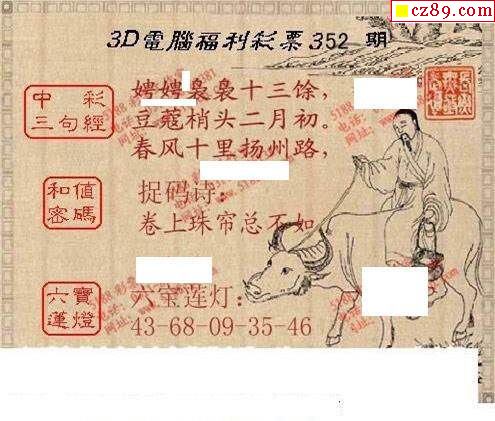 cz89.com
3D電腦福利彩票352 期
中彩
三句經
娉娉袅袅十三馀,
豆蔻梢头二月初。
春风十里扬州路,
和值
密碼
捉码诗:
卷上珠帘总不如
六寶
蓮燈
六宝莲灯:
43-68-09-35-46